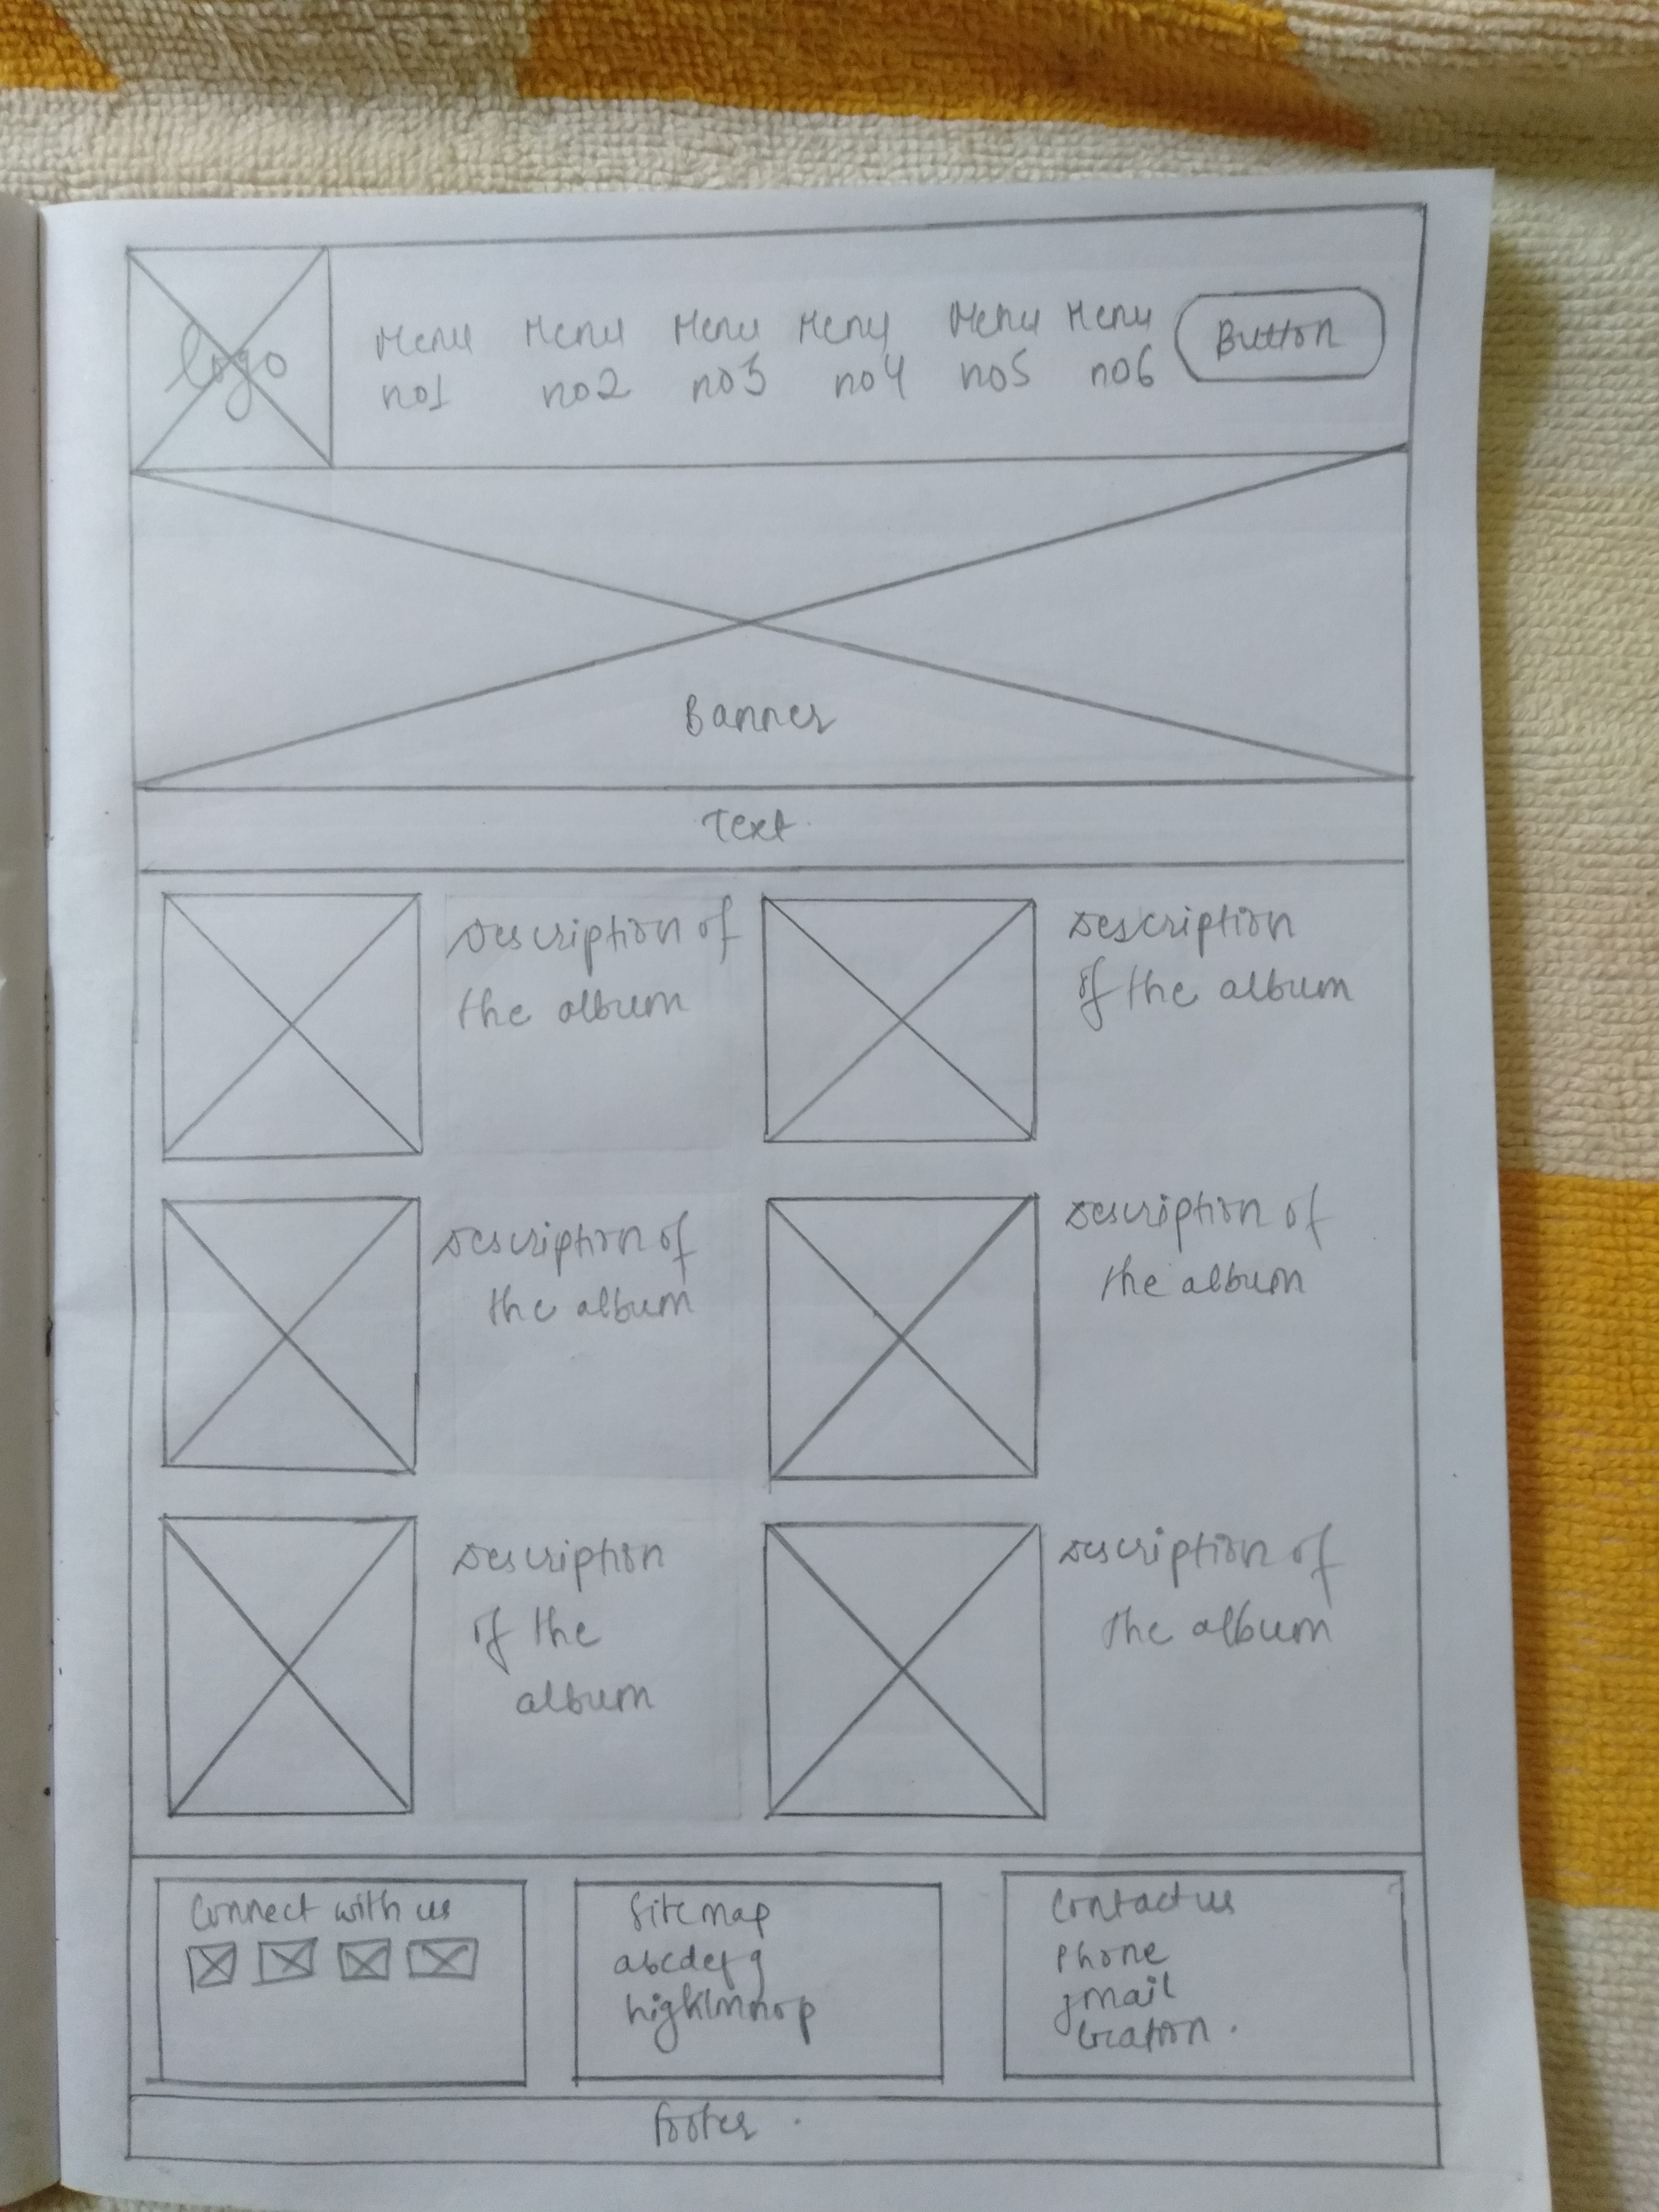 logo
Menu Menu Menu Menu Menu Menu
no1 no2 no3 no4 no5 no6
Button
Banner
Text
Description of
the album
Description
of the album
Description of
the album
Description of
the album
Description
of the
album
Description of
the album
Connect with us
Sitemap
abcdefg
higklmnop
Contact us
Phone
gmail
location.
footer